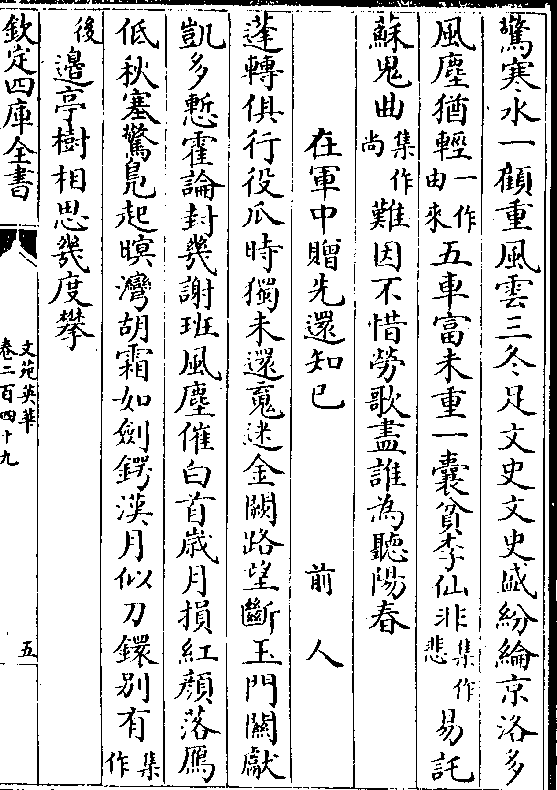 驚寒水一顧重風雲三冬足文史文史盛紛綸京洛多
風塵猶輕一作由來五車富未重一囊貧李仙非集作悲易託
蘇鬼曲集作尚難因不惜勞歌盡誰為聽陽春
在軍中贈先還知已 前人
蓬轉俱行役瓜時獨未還䰟迷金闕路望斷玉門闗獻
凱多慙霍論封幾謝班風塵催白首嵗月損紅顔落鴈
低秋塞驚鳬起暝灣胡霜如劍鍔漢月似刀鐶别有集作
後邉亭樹相思幾度攀
欽定四庫全書
文苑英華
卷二百四十九
五